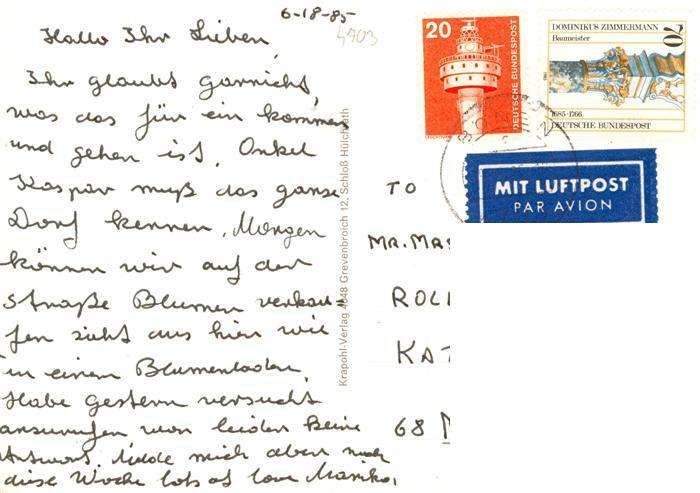 6-18-85
4703
Hallo Ihr Lieben,
Ihr glaubt garnicht,
was das für ein kommen
und gehen ist. Onkel
Kaspar muß das ganze
Dorf kennen. Morgen
können wir auf der
Straße Blumen verkau=
fen sieht aus hier wie
in einem Blumenladen.
Habe gestern versucht
anzurufen war leider keine
Antwort. Melde mich aber noch
diese Woche lots of love Marika.
Krapohl-Verlag 4048 Grevenbroich 12, Schloß Hülchrath
20
DEUTSCHE BUNDESPOST
DOMINIKUS ZIMMERMANN
Baumeister
70
1685-1766
DEUTSCHE BUNDESPOST
MIT LUFTPOST
PAR AVION
TO
MR. MRS
ROL
KAT
68